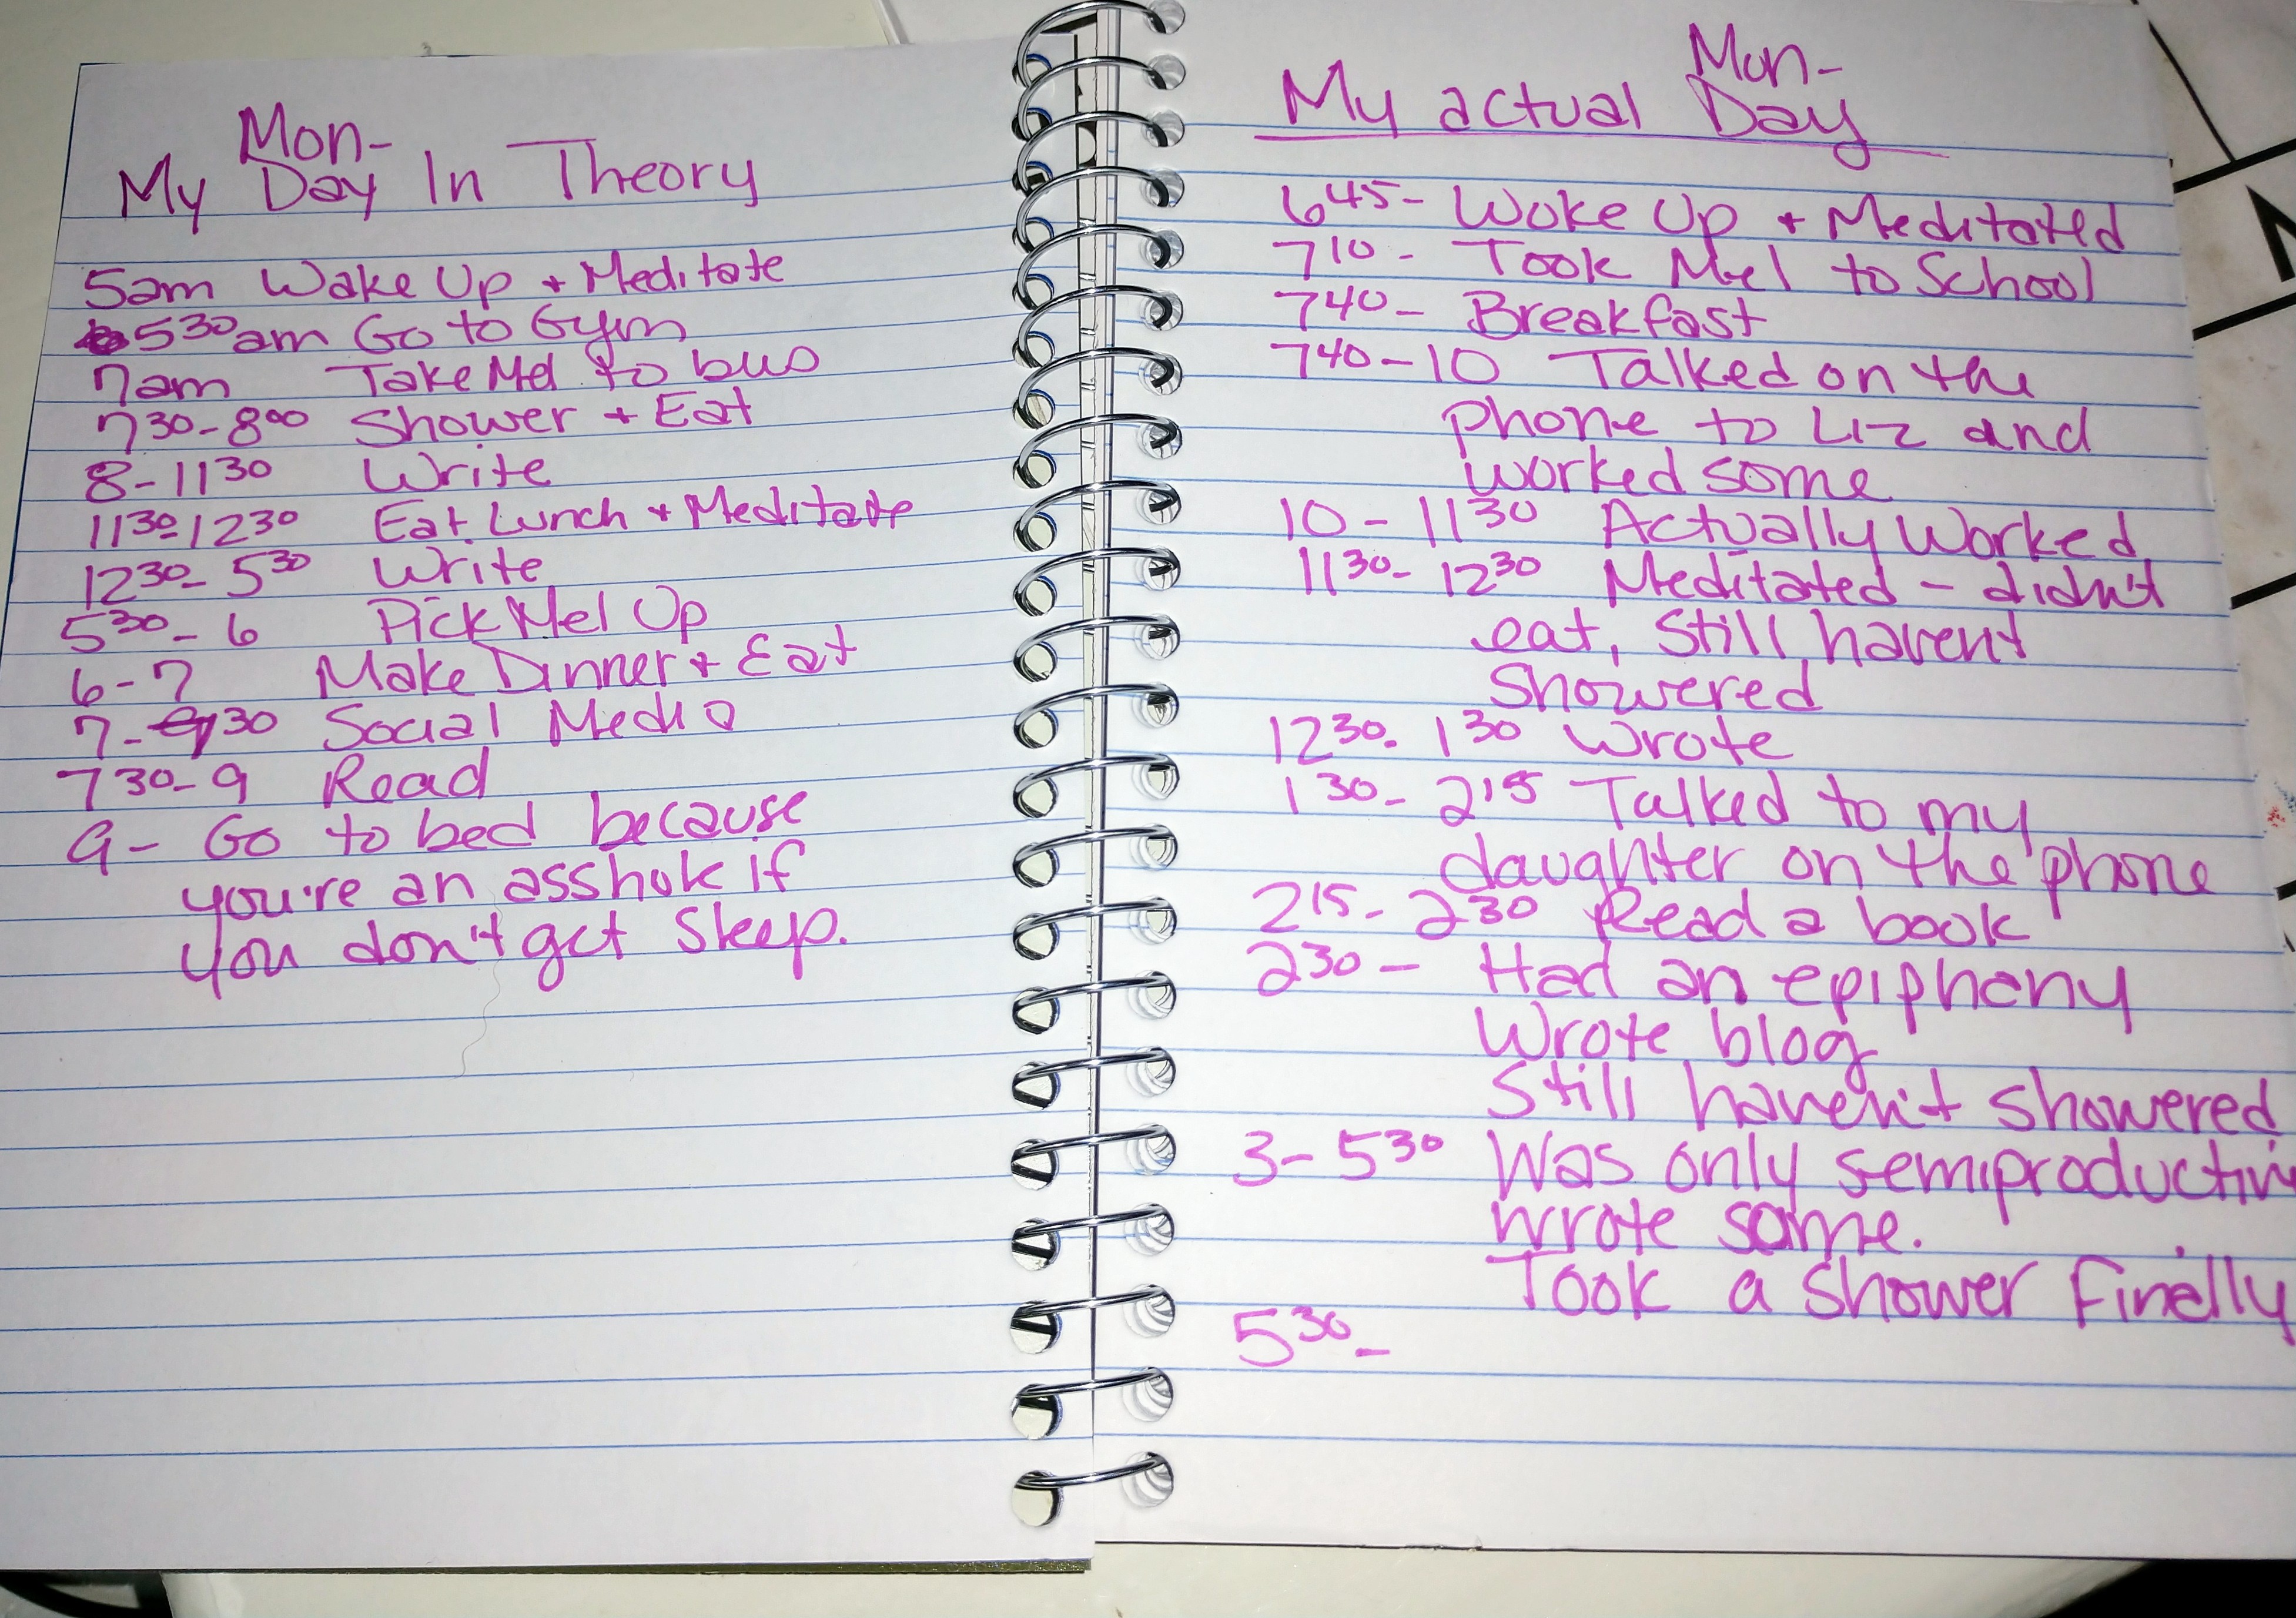 Mon-
My Day In Theory
5am Wake Up + Meditate
5 30 am Go to Gym
7am Take Mel to bus
7 30 - 8 00 Shower + Eat
8 - 11 30 Write
11 30 - 12 30 Eat Lunch + Meditate
12 30 - 5 30 Write
5 30 - 6 Pick Mel Up
6 - 7 Make Dinner + Eat
7 - 30 Social Media
7 30 - 9 Read
9 - Go to bed because
you're an asshole if
you don't get sleep.
Mon-
My actual Day
6 45 - Woke Up + Meditated
7 10 - Took Mel to School
7 40 - Breakfast
7 40 - 10 Talked on the
phone to Liz and
worked some
10 - 11 30 Actually Worked
11 30 - 12 30 Meditated - didn't
eat, Still havent
Showered
12 30 - 1 30 Wrote
1 30 - 2 15 Talked to my
daughter on the phone
2 15 - 2 30 Read a book
2 30 - Had an epiphany
Wrote blog
Still haven't showered
3 - 5 30 Was only semiproductiv
wrote some.
Took a shower finally
5 30 -